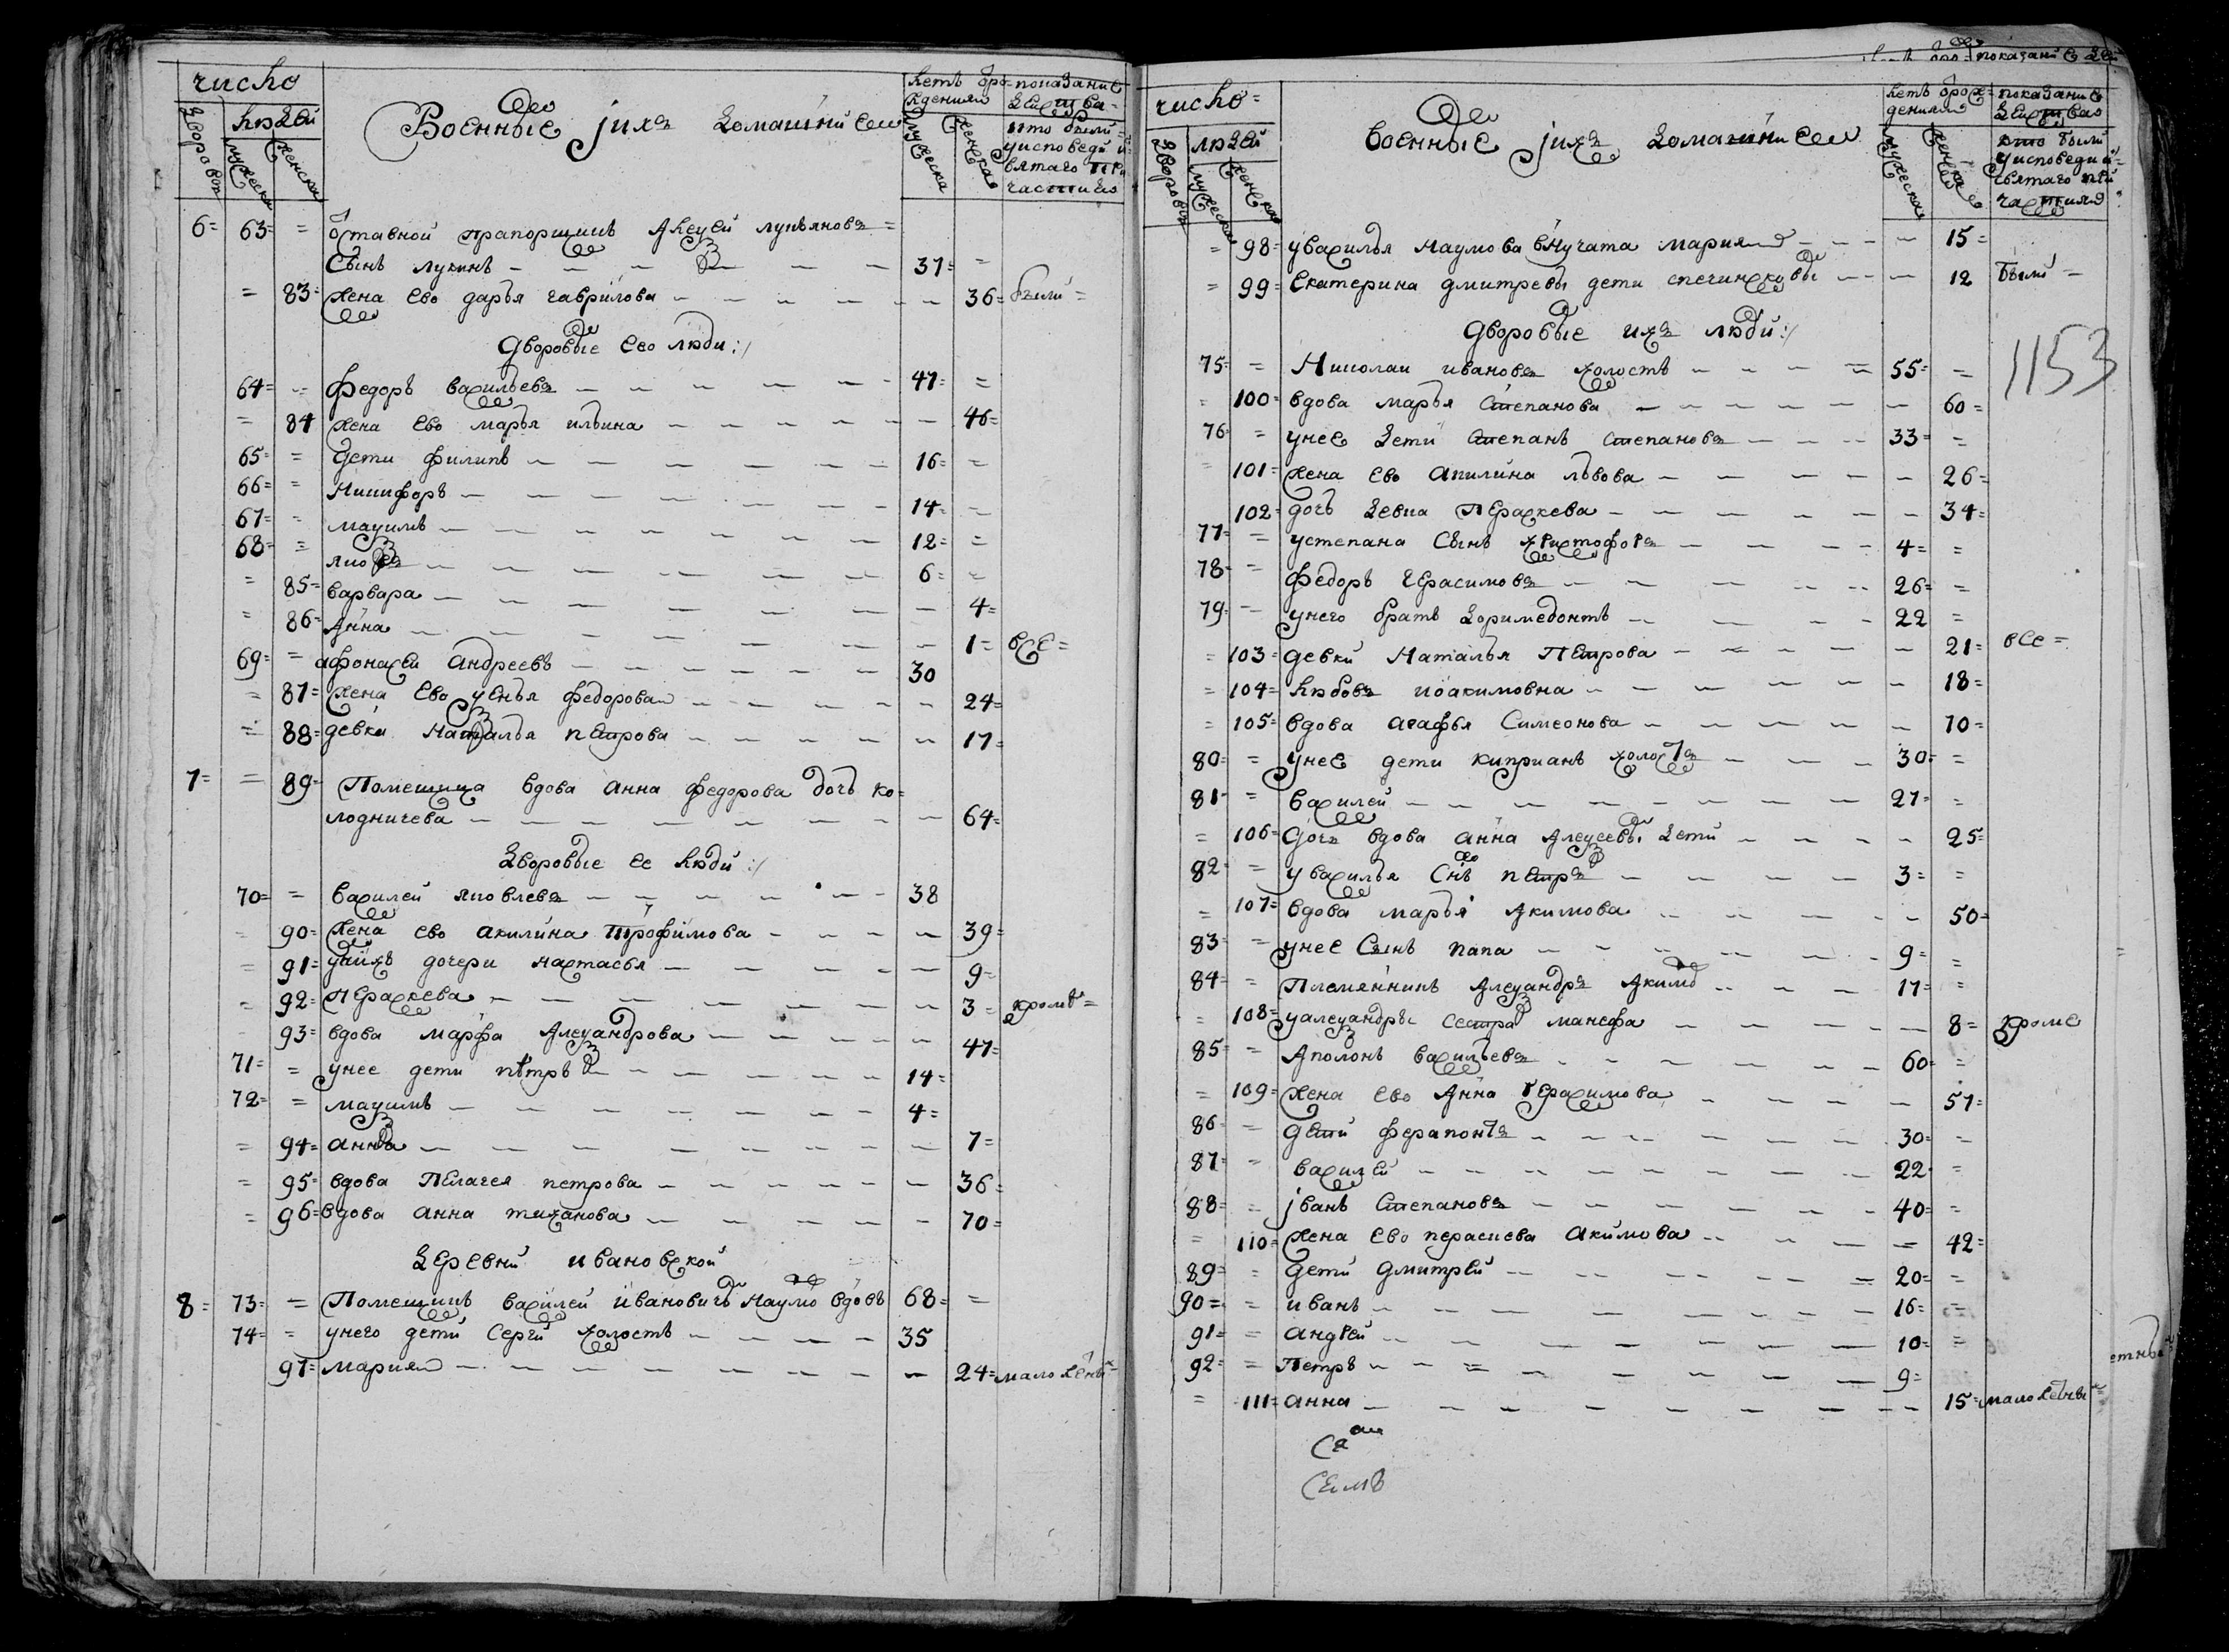 число
людей
дворовъ
мужеска
женска
Военные јихъ домашние
летъ от рождения
мужеска
женска
показание действа
кто были
у исповеди и
святаго при
частия
6= 63= = отставной прапорщикъ Алексей лукьяновъ=
Сынъ лукинъ 37= =
= 83= жена Ево дарья гаврилова 36= были=
Дворовые Ево люди :/
64= = федоръ васильевъ 47= =
= 84 жена Ево марья ильина 46=
65= = дети филипъ 16= =
66= = Никифоръ 14= =
67= = маѯимъ 12= =
68= = яковъ 6= =
= 85= варвара 4=
= 86= Анна 1= все=
69= = афонасей андреевъ 30
= 87= жена Ево ѯенья федорова 24=
= 88= девка Наталья петрова 17=
7= = 89= Помещица вдова анна федорова дочь ко=
лодничева 64=
Дворовые ее люди :/
70= = василей яковлевъ 38
90= жена ево акилина трофимова 39=
= 91= у нихъ дочери настасья 9=
= 92= Пераскева 3= кроме=
93= вдова марфа Алеѯандрова 47=
71= = у нее дети петръ 14=
72= = маѯимъ 4=
= 94= анна 7=
= 95= вдова Пелагея петрова 36=
= 96= вдова анна тиханова 70=
Деревни ивановской
8= 73= = Помещикъ василей ивановичь Наумо вдовъ 68= =
74= = у него дети Сергей холостъ 35
97= мария 24= малолетны=
число=
людей
дворовъ
мужеска
женска
военные јихъ домашние
летъ от рождения
мужеска
женска
показание действа
кто были
у исповеди и
святаго при
частия
= 98= у василья наумова внучата мария 15=
= 99= Екатерина дмитревы дети спечинсковы 12 были=
Дворовые ихъ люди :/
1153
75= = Николаи ивановъ холостъ 55= =
= 100= вдова марья Степанова 60=
76= = у нее дети Степанъ степановъ 33= =
= 101= жена Ево апилина львова 26=
102= дочь девка Пераскева 34=
77= = у степана Сынъ христофоръ 4= =
78= = федоръ Герасимовъ 26= =
79= = у него братъ доримедонтъ 22 =
= 103= девки Наталья Петрова 21= все=
= 104= Любовъ иоакимовна 18=
= 105= вдова агафья Симеонова 70=
80= = у нее дети киприанъ холостъ 30= =
81= = василей 27= =
= 106= дочъ вдова анна Алеѯеевы дети 25=
82= = у василья Снъ петръ 3= =
= 107= вдова марья Акимова 50=
83= = у нее Сынъ папа 9= =
84= = Племянникъ Алеѯандръ Акимо 17= =
= 108= у алеѯандры сестра манефа 8= кроме
85= = Аполонъ васильевъ 60= =
= 109= жена Ево Анна Герасимова 57=
86= = дети ферапонтъ 30= =
87= = василей 22= =
88= = јванъ Степановъ 40= =
= 110= жена Ево пераскева акимова 42=
89= = дети дмитрей 20= =
90= = иванъ 16= =
91= = андрей 10= =
92= = Петръ 9=
= 111= анна 15= малолетны=